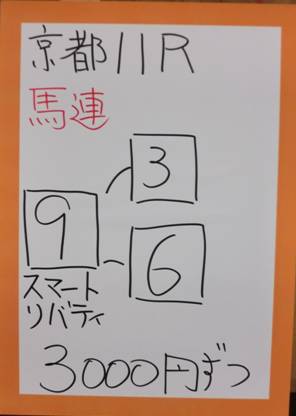 京都11R
馬連
3
9
6
スマート
リバティ
3000円ずつ